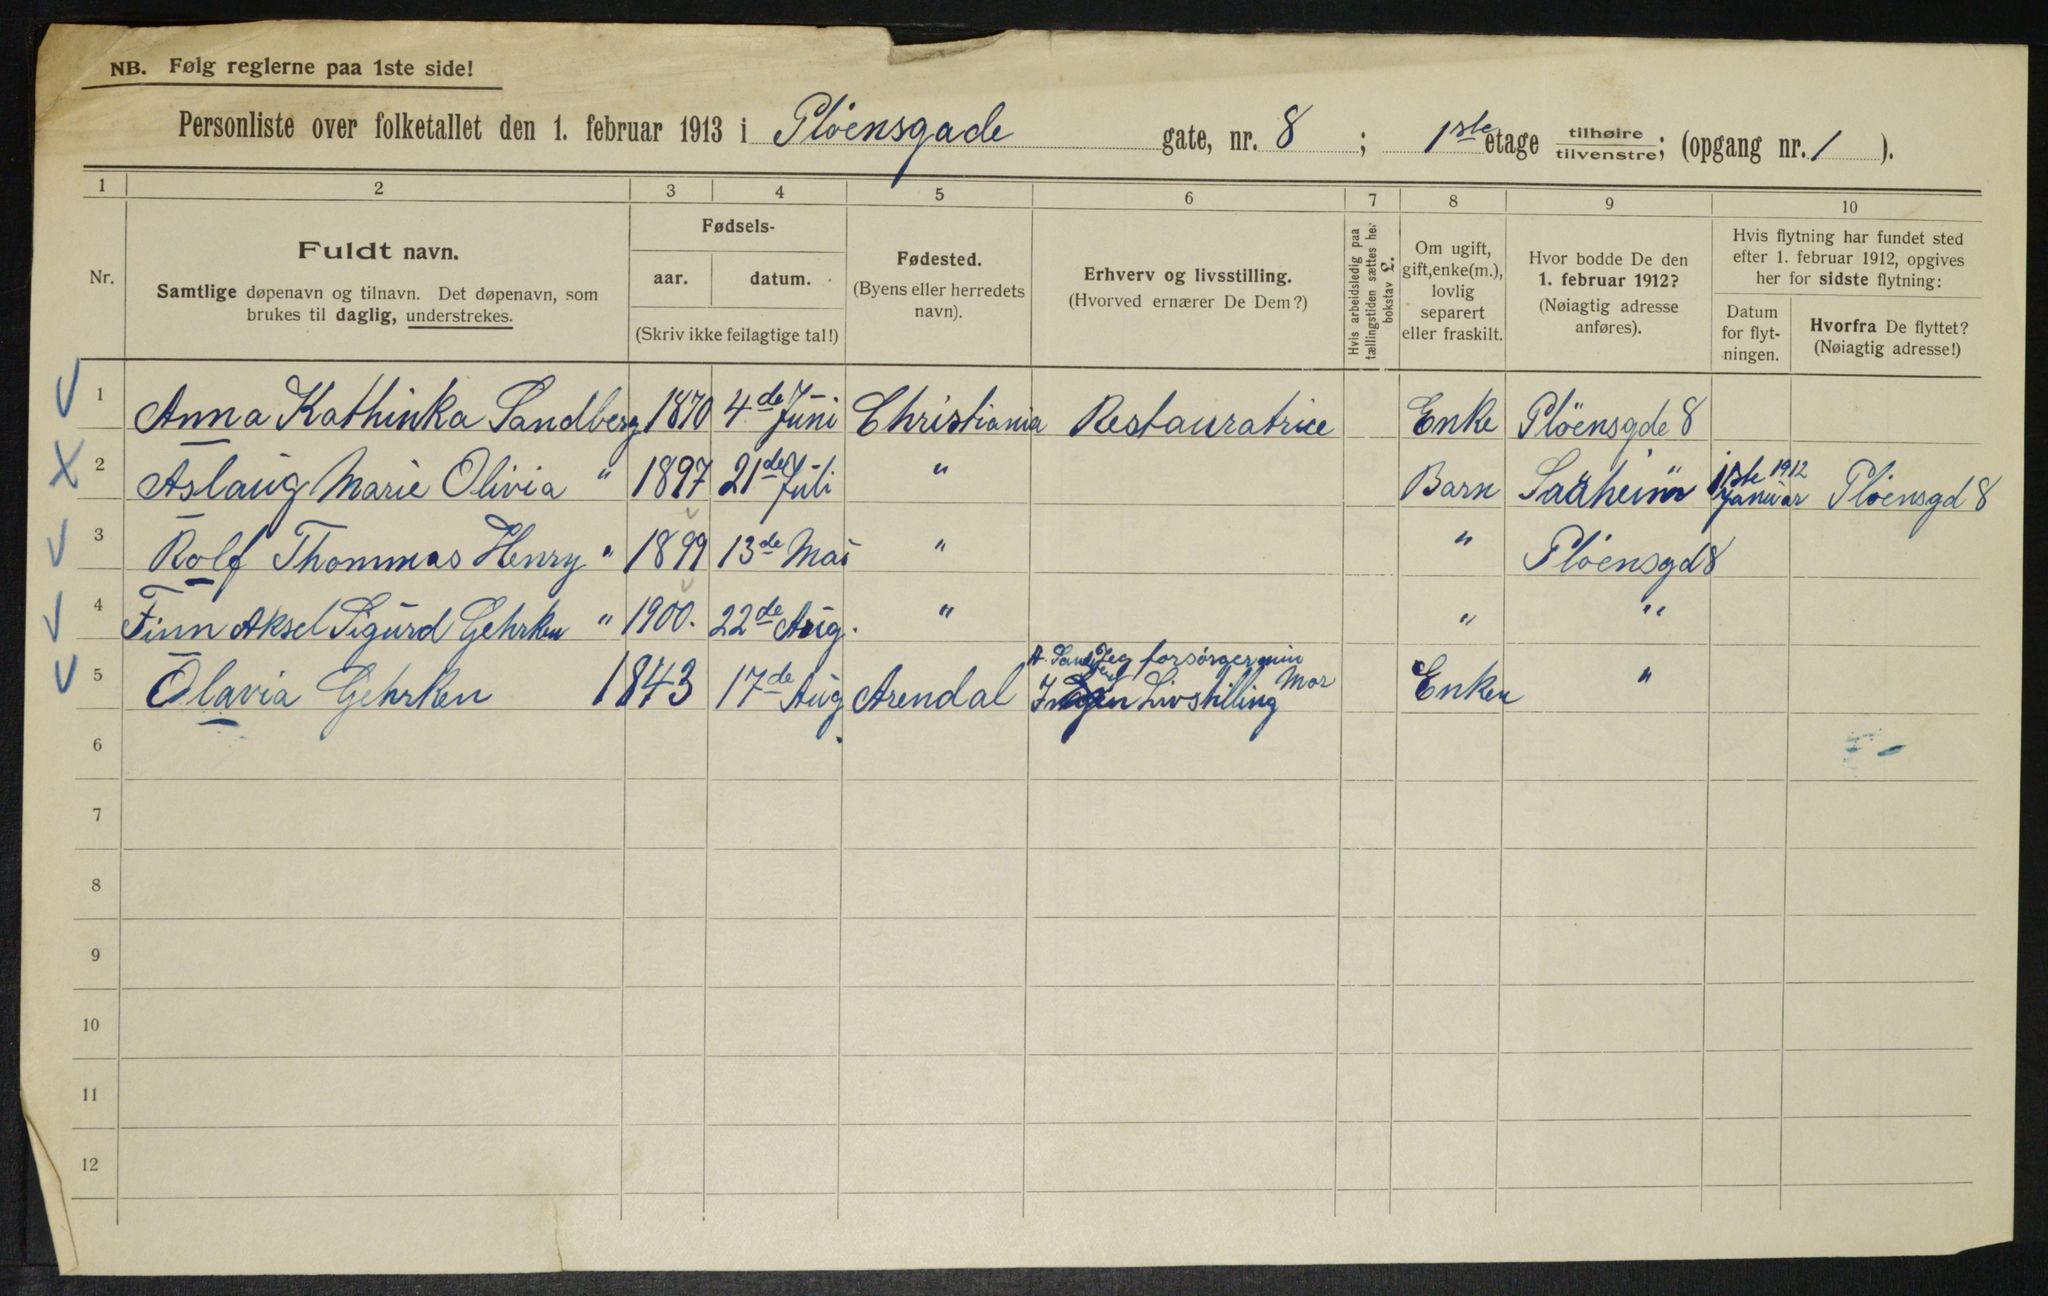 NB. Følg reglerne paa 1ste side!
Personliste over folketallet den 1. februar 1913 i Plöensgade gate, nr. 8; 1ste etage tilhøire tilvenstre; (opgang nr. 1).
1 2 3 4 5 6 7 8 9 10
Nr.
Fuldt navn.
Samtlige døpenavn og tilnavn. Det døpenavn, som
brukes til daglig, understrekes.
Fødsels-
aar. datum.
(Skriv ikke feilagtige tal!)
Fødested.
(Byens eller herredets
navn).
Erhverv og livsstilling.
(Hvorved ernærer De Dem?)
Hvis arbeidsledig paa
tællingstiden sættes her
bokstav L.
Om ugift,
gift, enke(m.),
lovlig
separert
eller fraskilt.
Hvor bodde De den
1. februar 1912?
(Nøiagtig adresse
anføres).
Hvis flytning har fundet sted
efter 1. februar 1912, opgives
her for sidste flytning:
Datum
for flyt-
ningen.
Hvorfra De flyttet?
(Nøiagtig adresse!)
1 Anna Kathinka Sandberg 1870 4de Juni Christiania Restauratrice Enke Plöensgde 8
2 Aslaug Marie Olivia " 1897 21de Juli " Barn 1ste Januar 1912 Plöensgd 8
3 Rolf Thommas Henry " 1899 13de Mai " " Plöensgd 8
4 Finn Aksel Sigurd Gehrken " 1900. 22de Aug. " " "
5 Olavia Gehrken 1843 17de Aug Arendal Jeg forsörger min Mor Ingen Livstilling Enken "
6
7
8
9
10
11
12